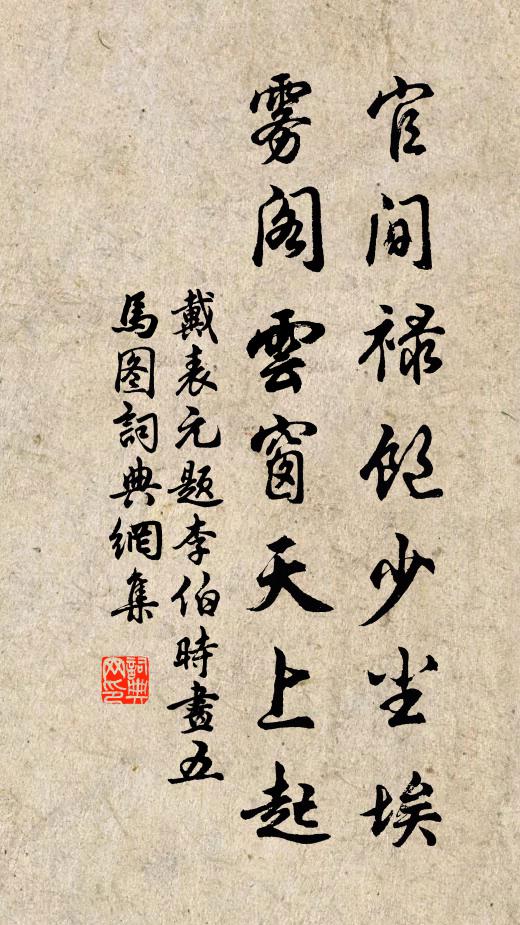 官间禄饱少尘埃
雾阁雲窗天上起
戴表元题李伯時畫五
馬图詞典網集
詞典网印